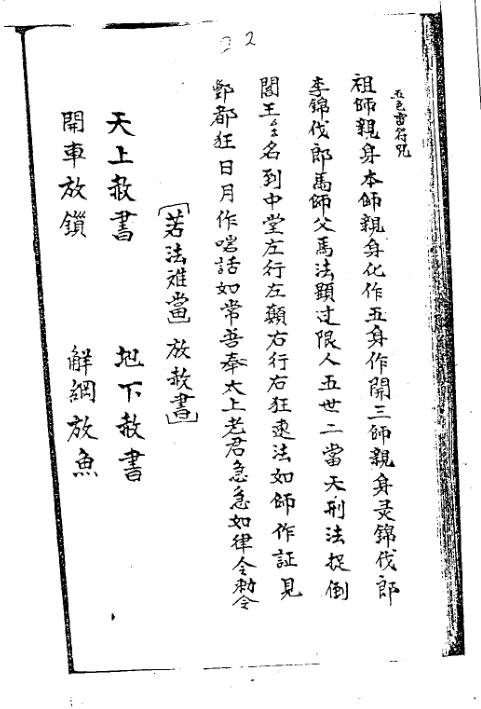 2
五色雷符咒
祖師親身本師親身化作五身作開三師親身灵錦伐郎
李錦伐郎馬師父馬法顕过限人五世二當天刑法捉倒
閻王名到中堂左行左顛右行右狂速法如師作証見
酆都狂日月作喏話如常善奉太上老君急急如律令勅令
〔若法难當放赦書〕
天上赦書 地下赦書
開車放鎖 解網放魚